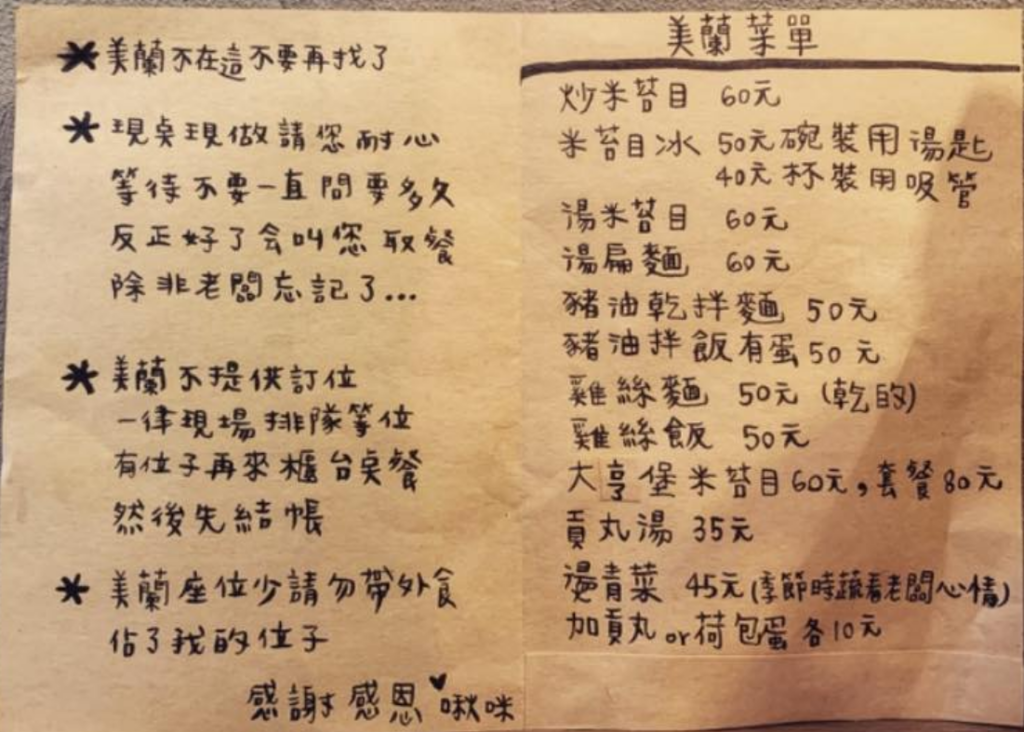 * 美蘭不在這不要再找了
* 現桌現做請您耐心
等待不要一直問要多久
反正好了会叫您取餐
除非老闆忘記了...
* 美蘭不提供訂位
一律現場排隊等位
有位子再來櫃台桌餐
然後先結帳
* 美蘭座位少請勿帶外食
佔了我的位子
感謝感恩♥啾咪
美蘭菜單
炒米苔目 60元
米苔目冰 50元碗裝用湯匙
40元杯裝用吸管
湯米苔目 60元
湯扁麵 60元
豬油乾拌麵 50元
豬油拌飯有蛋50元
雞絲麵 50元(乾的)
雞絲飯 50元
大亨堡米苔目60元,套餐80元
貢丸湯 35元
燙青菜 45元(季節時蔬看老闆心情)
加貢丸or荷包蛋各10元